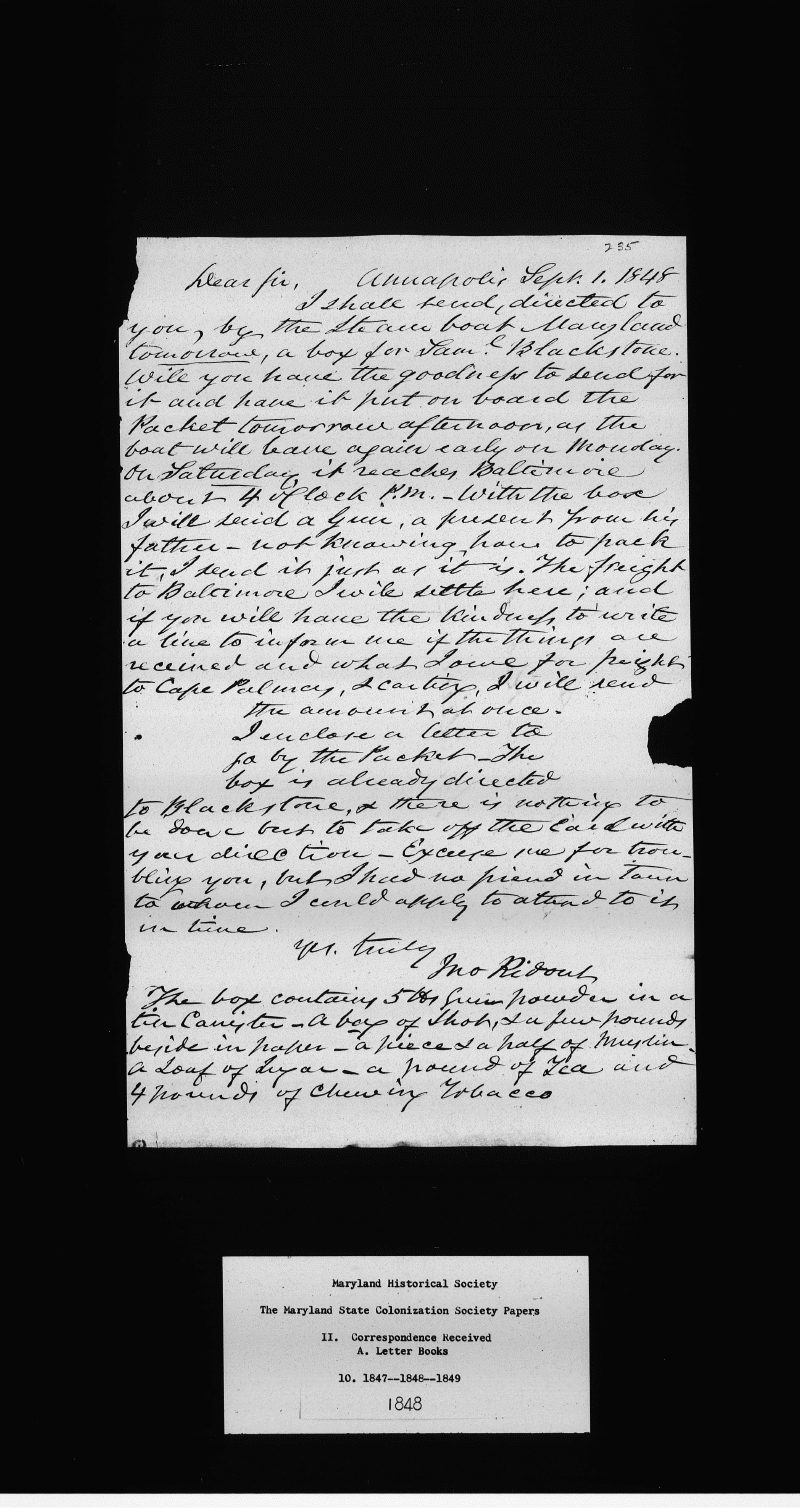 235
Dear Sir, Annapolis Sept. 1. 1848
I shall send, directed to
you, by the Steam boat Maryland
tomorrow, a box for Saml. Blackstone.
Will you have the goodness to send for
it and have it put on board the
Packet tomorrow afternoon, as the
boat will leave again early on Monday.
On Saturday it reaches Baltimore
about 4 O'Clock P.M. - With the box
I will send a Gun, a present from his
father - not knowing how to pack
it, I send it just as it is. The freight
to Baltimore I will settle here; and
if you will have the kindness to write
a line to inform me if the things are
received and what I owe for freight
to Cape Palmas, & cartg, I will send
the amount at once.
I enclose a letter to
go by the Packet - The
box is already directed
to Blackstone, & there is nothing to
be done but to take off the Card with
your direction - Excuse me for trou-
bling you, but I had no friend in Town
to whom I could apply to attend to it
in time.
yrs. truly
Jno Ridout
The box contains 5 lbs Gun powder in a
tin Canister - A bag of Shot, & a few pounds
beside in paper - a piece & a half of Muslin -
a Loaf of Sugar - a pound of Tea and
4 pounds of Chewing Tobacco
Maryland Historical Society
The Maryland State Colonization Society Papers
II. Correspondence Received
A. Letter Books
10. 1847--1848--1849
1848